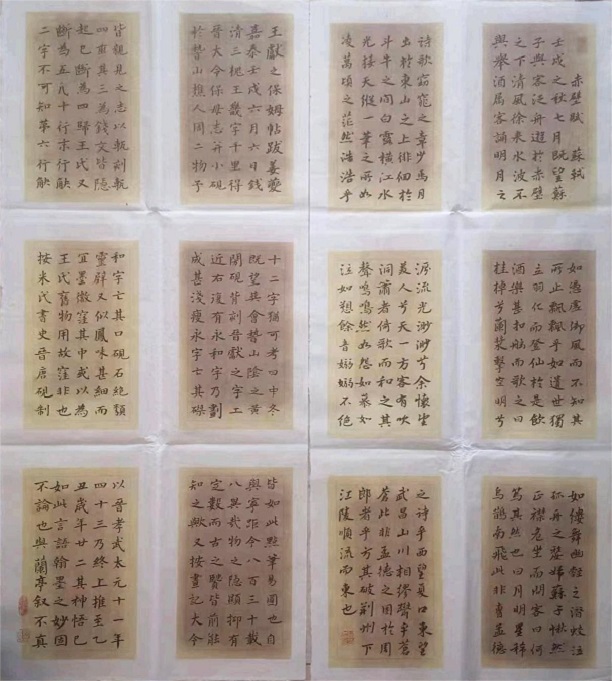 赤壁賦 蘇軾
壬戌之秋七月既望蘇
子與客泛舟遊於赤壁
之下清風徐來水波不
興舉酒屬客誦明月之
詩歌窈窕之章少焉月
出於東山之上徘徊於
斗牛之間白露橫江水
光接天縱一葦之所如
凌萬頃之茫然浩浩乎
如憑虛御風而不知其
所止飄飄乎如遺世獨
立羽化而登仙於是飲
酒樂甚扣舷而歌之曰
桂棹兮蘭槳擊空明兮
泝流光渺渺兮余懷望
美人兮天一方客有吹
洞簫者倚歌而和之其
聲嗚嗚然如怨如慕如
泣如愬餘音嫋嫋不絕
如縷舞幽壑之潛蛟泣
孤舟之嫠婦蘇子愀然
正襟危坐而問客曰何
為其然也曰月明星稀
烏鵲南飛此非曹孟德
之詩乎西望夏口東望
武昌山川相繆鬱乎蒼
蒼此非孟德之困於周
郎者乎方其破荊州下
江陵順流而東也
王獻之保姆帖跋姜夔
嘉泰壬戌六月六日錢
清三槐王畿字千里得
晉大令保母志并小硯
於嵇山樵人周二物予
皆親見之志以甎刻甎
四垂其三為錢文皆隱
起已斷為四歸王氏又
斷為五凡十行末行缺
二字不可知第六行缺
十二字猶可考曰中冬
既望與會嵇山陰之黃
閍硯背刻晉獻之字上
近右復有永和字乃劃
成甚淺瘦永字亡其磔
和字亡其口硯石絕類
靈壁又似鳳味甚細而
宜墨微窪其中或以為
王氏舊物用故窪非也
按米氏書史晉唐硯制
皆如此點筆易圓也自
興寧距今八百三十載
異哉物之隱顯抑有
定數而古之賢皆前
知之歟又按畫記大令
以晉孝武太元十一年
四十三乃終上推至乙
丑歲年廿二其神悟已
如此言語翰墨之妙固
不論也與蘭亭敘不真